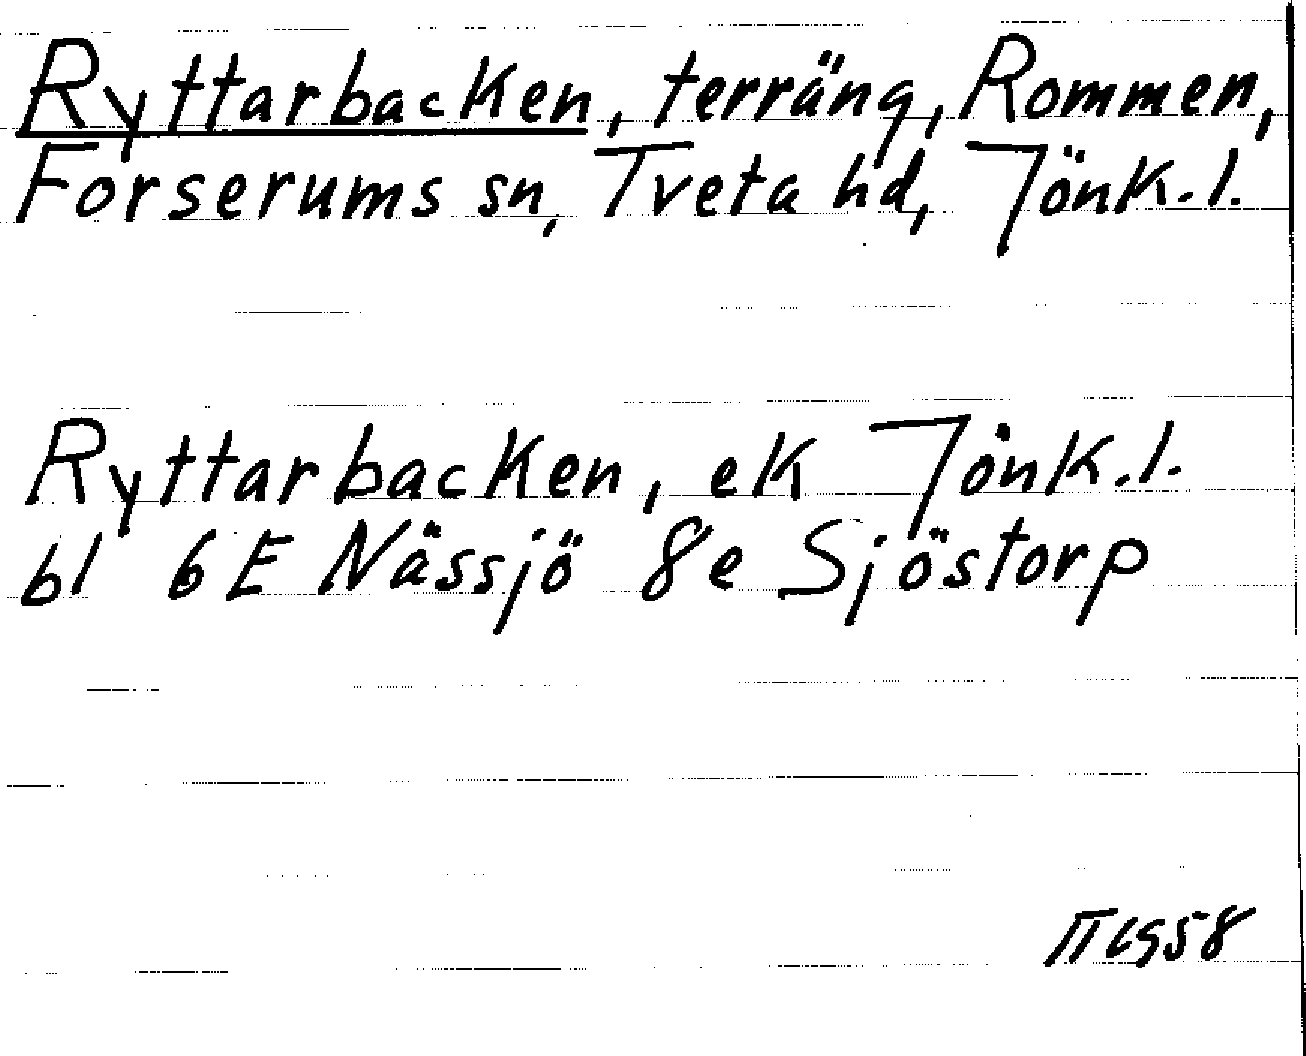 Ryttarbacken, terräng, Rommen,
Forserums sn, Tveta hd, Jönk.l.
Ryttarbacken, ek Jönk.l.
bl 6E Nässjö 8e Sjöstorp